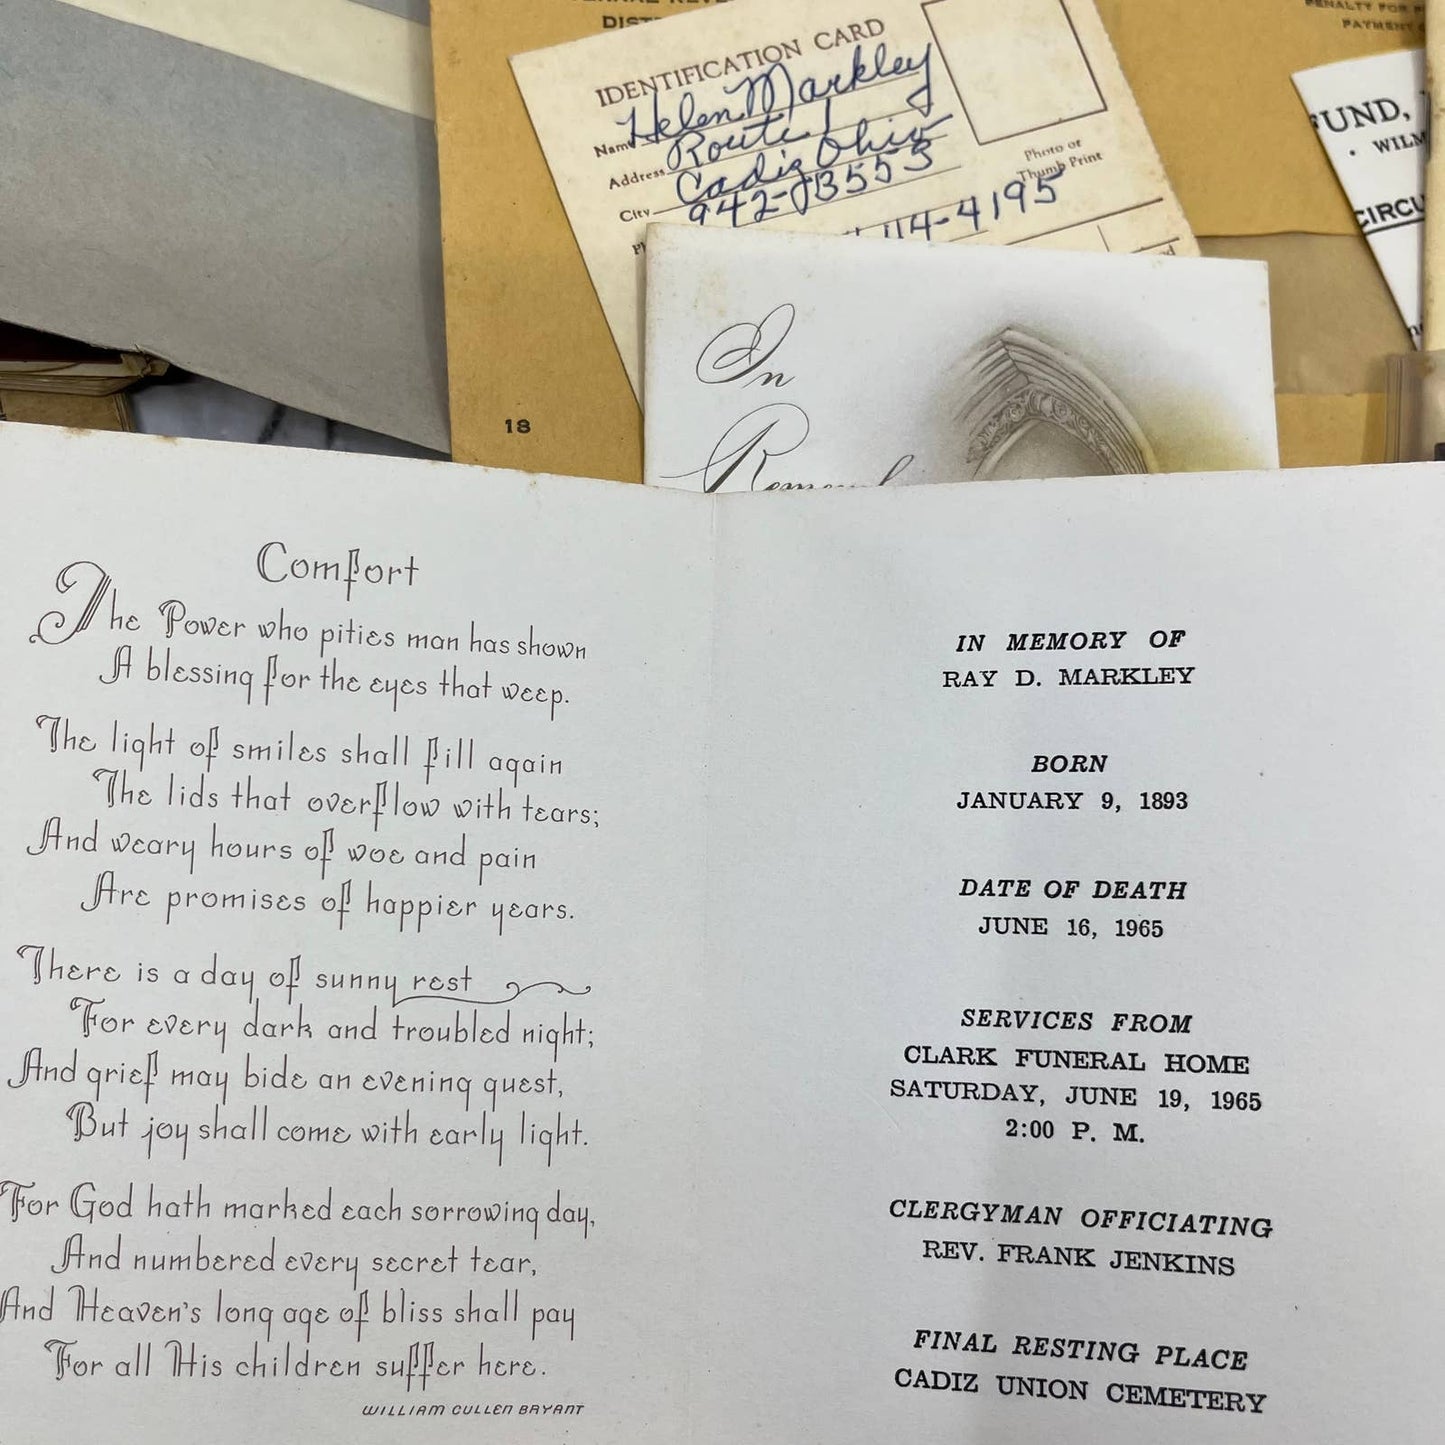 IDENTIFICATION CARD
Name Helen Markley
Address Route 1
City Cadiz Ohio
942-J3553
114-4195
Photo or
Thumb Print
PENALTY FOR
PAYMENT
FUND,
CIRCU
18
In
Comfort
The Power who pities man has shown
A blessing for the eyes that weep.
The light of smiles shall fill again
The lids that overflow with tears;
And weary hours of woe and pain
Are promises of happier years.
There is a day of sunny rest
For every dark and troubled night;
And grief may bide an evening guest,
But joy shall come with early light.
For God hath marked each sorrowing day,
And numbered every secret tear,
And Heaven's long age of bliss shall pay
For all His children suffer here.
WILLIAM CULLEN BRYANT
IN MEMORY OF
RAY D. MARKLEY
BORN
JANUARY 9, 1893
DATE OF DEATH
JUNE 16, 1965
SERVICES FROM
CLARK FUNERAL HOME
SATURDAY, JUNE 19, 1965
2:00 P. M.
CLERGYMAN OFFICIATING
REV. FRANK JENKINS
FINAL RESTING PLACE
CADIZ UNION CEMETERY